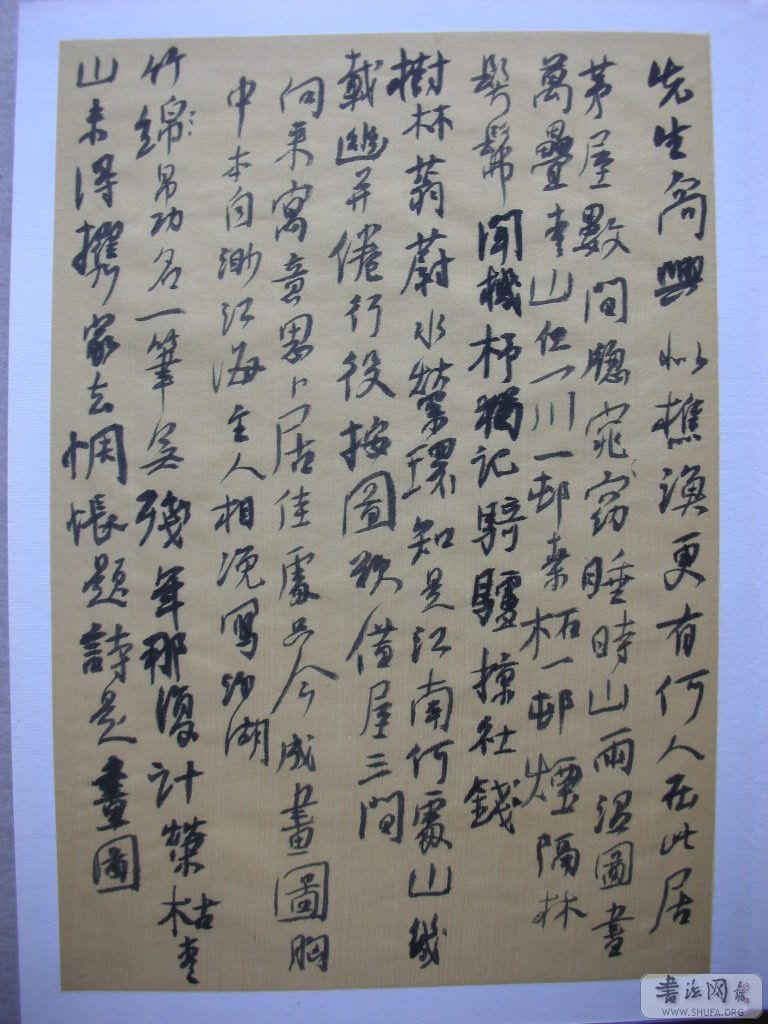 先生高興似樵漁更有何人在此居
茅屋數間牕窕窈睡時山雨溼圖書
萬疊青山但一川一邨桑柘一邨煙隔林
髣髴聞機杼猶記騎驢掠社錢
樹林蓊蔚水縈環知是江南何處山幾
載幽并倦行役按圖欲借屋三間
向來寓意卜居佳處只今成畫圖胸
中本自渺江海主人相況寫湖
竹綿帛功名一筆無殘年那復計榮枯青
山未得攜家去惆悵題詩是畫圖
書法网
WWW.SHUFA.ORG